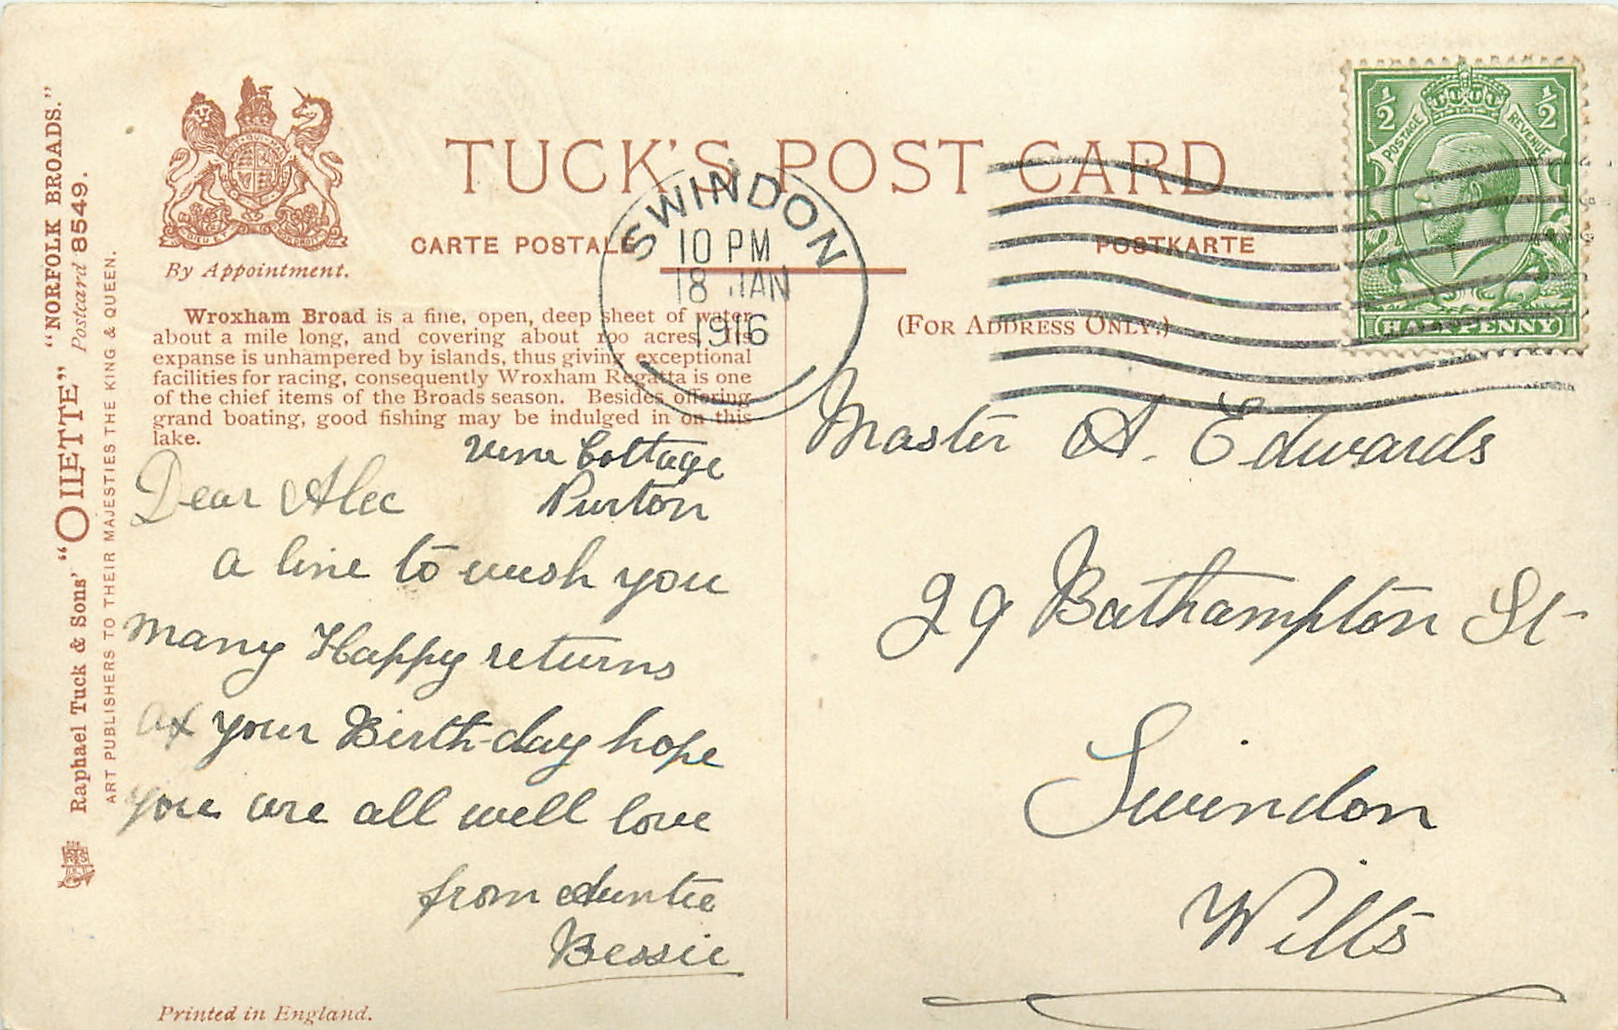 TUCK'S POST CARD
CARTE POSTALE
POSTKARTE
By Appointment.
(FOR ADDRESS ONLY.)
"NORFOLK BROADS."
Postcard 8549.
Raphael Tuck & Sons' "OILETTE"
ART PUBLISHERS TO THEIR MAJESTIES THE KING & QUEEN.
Wroxham Broad is a fine, open, deep sheet of water
about a mile long, and covering about 100 acres. Its
expanse is unhampered by islands, thus giving exceptional
facilities for racing, consequently Wroxham Regatta is one
of the chief items of the Broads season. Besides offering
grand boating, good fishing may be indulged in on this
lake.
SWINDON
10 PM
18 JAN
1916
½ ½
POSTAGE REVENUE
HALFPENNY
Cottage
Purton
Dear Alec
a line to wish you
many Happy returns
of your Birth-day hope
you are all well love
from Auntie
Bessie
Master A. Edwards
29 Bathampton St
Swindon
Wilts
Printed in England.